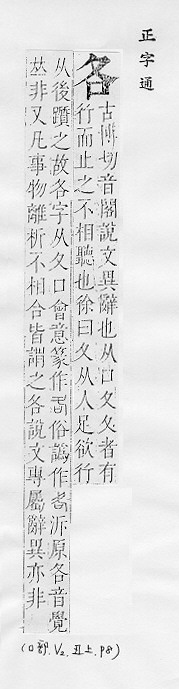 正字通
各
古博切音閣說文異辭也从口夂夂者有
行而止之不相聽也徐曰夂从人足欲行
从後躓之故各字从夂口會意篆作俗譌作泝原各音覺
𠀤非又凡事物離析不相合皆謂之各說文專屬辭異亦非
(口部, V2, 丑上, p8)